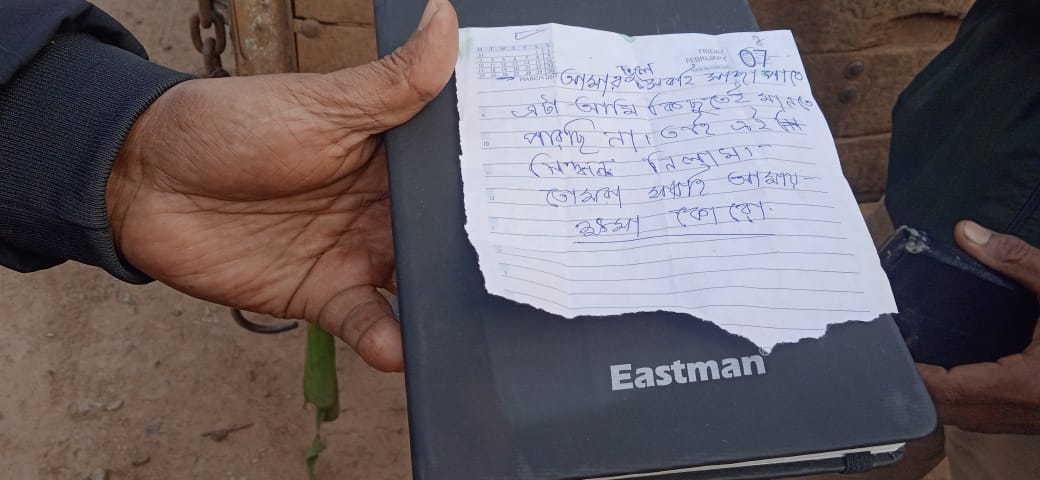 FRIDAY
FEBRUARY 07
MARCH
আমার ভুল সবাই সাজা পাবে
এটা আমি কিছুতেই মানতে
পারছি না। তাই এই
সিদ্ধান্ত নিলাম।-
তোমরা সবাই আমায়-
ক্ষমা কোরো।
Eastman